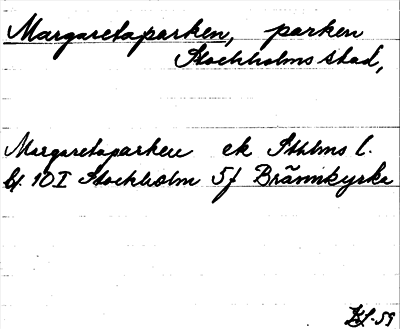 Margaretaparken, parken
Stockholms stad,
Margaretaparken ek Sthlms l.
bl. 10 I Stockholm 5f Brännkyrka
59